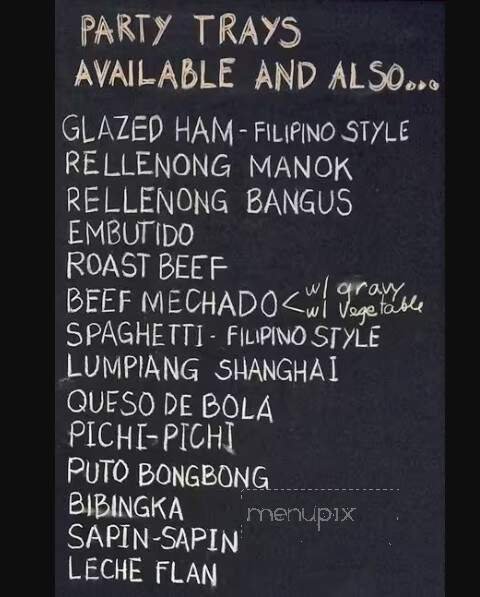 PARTY TRAYS
AVAILABLE AND ALSO...
GLAZED HAM - FILIPINO STYLE
RELLENONG MANOK
RELLENONG BANGUS
EMBUTIDO
ROAST BEEF
BEEF MECHADO < w/ gravy
w/ Vegetable
SPAGHETTI - FILIPINO STYLE
LUMPIANG SHANGHAI
QUESO DE BOLA
PICHI-PICHI
PUTO BONGBONG
BIBINGKA
menupix
SAPIN-SAPIN
LECHE FLAN